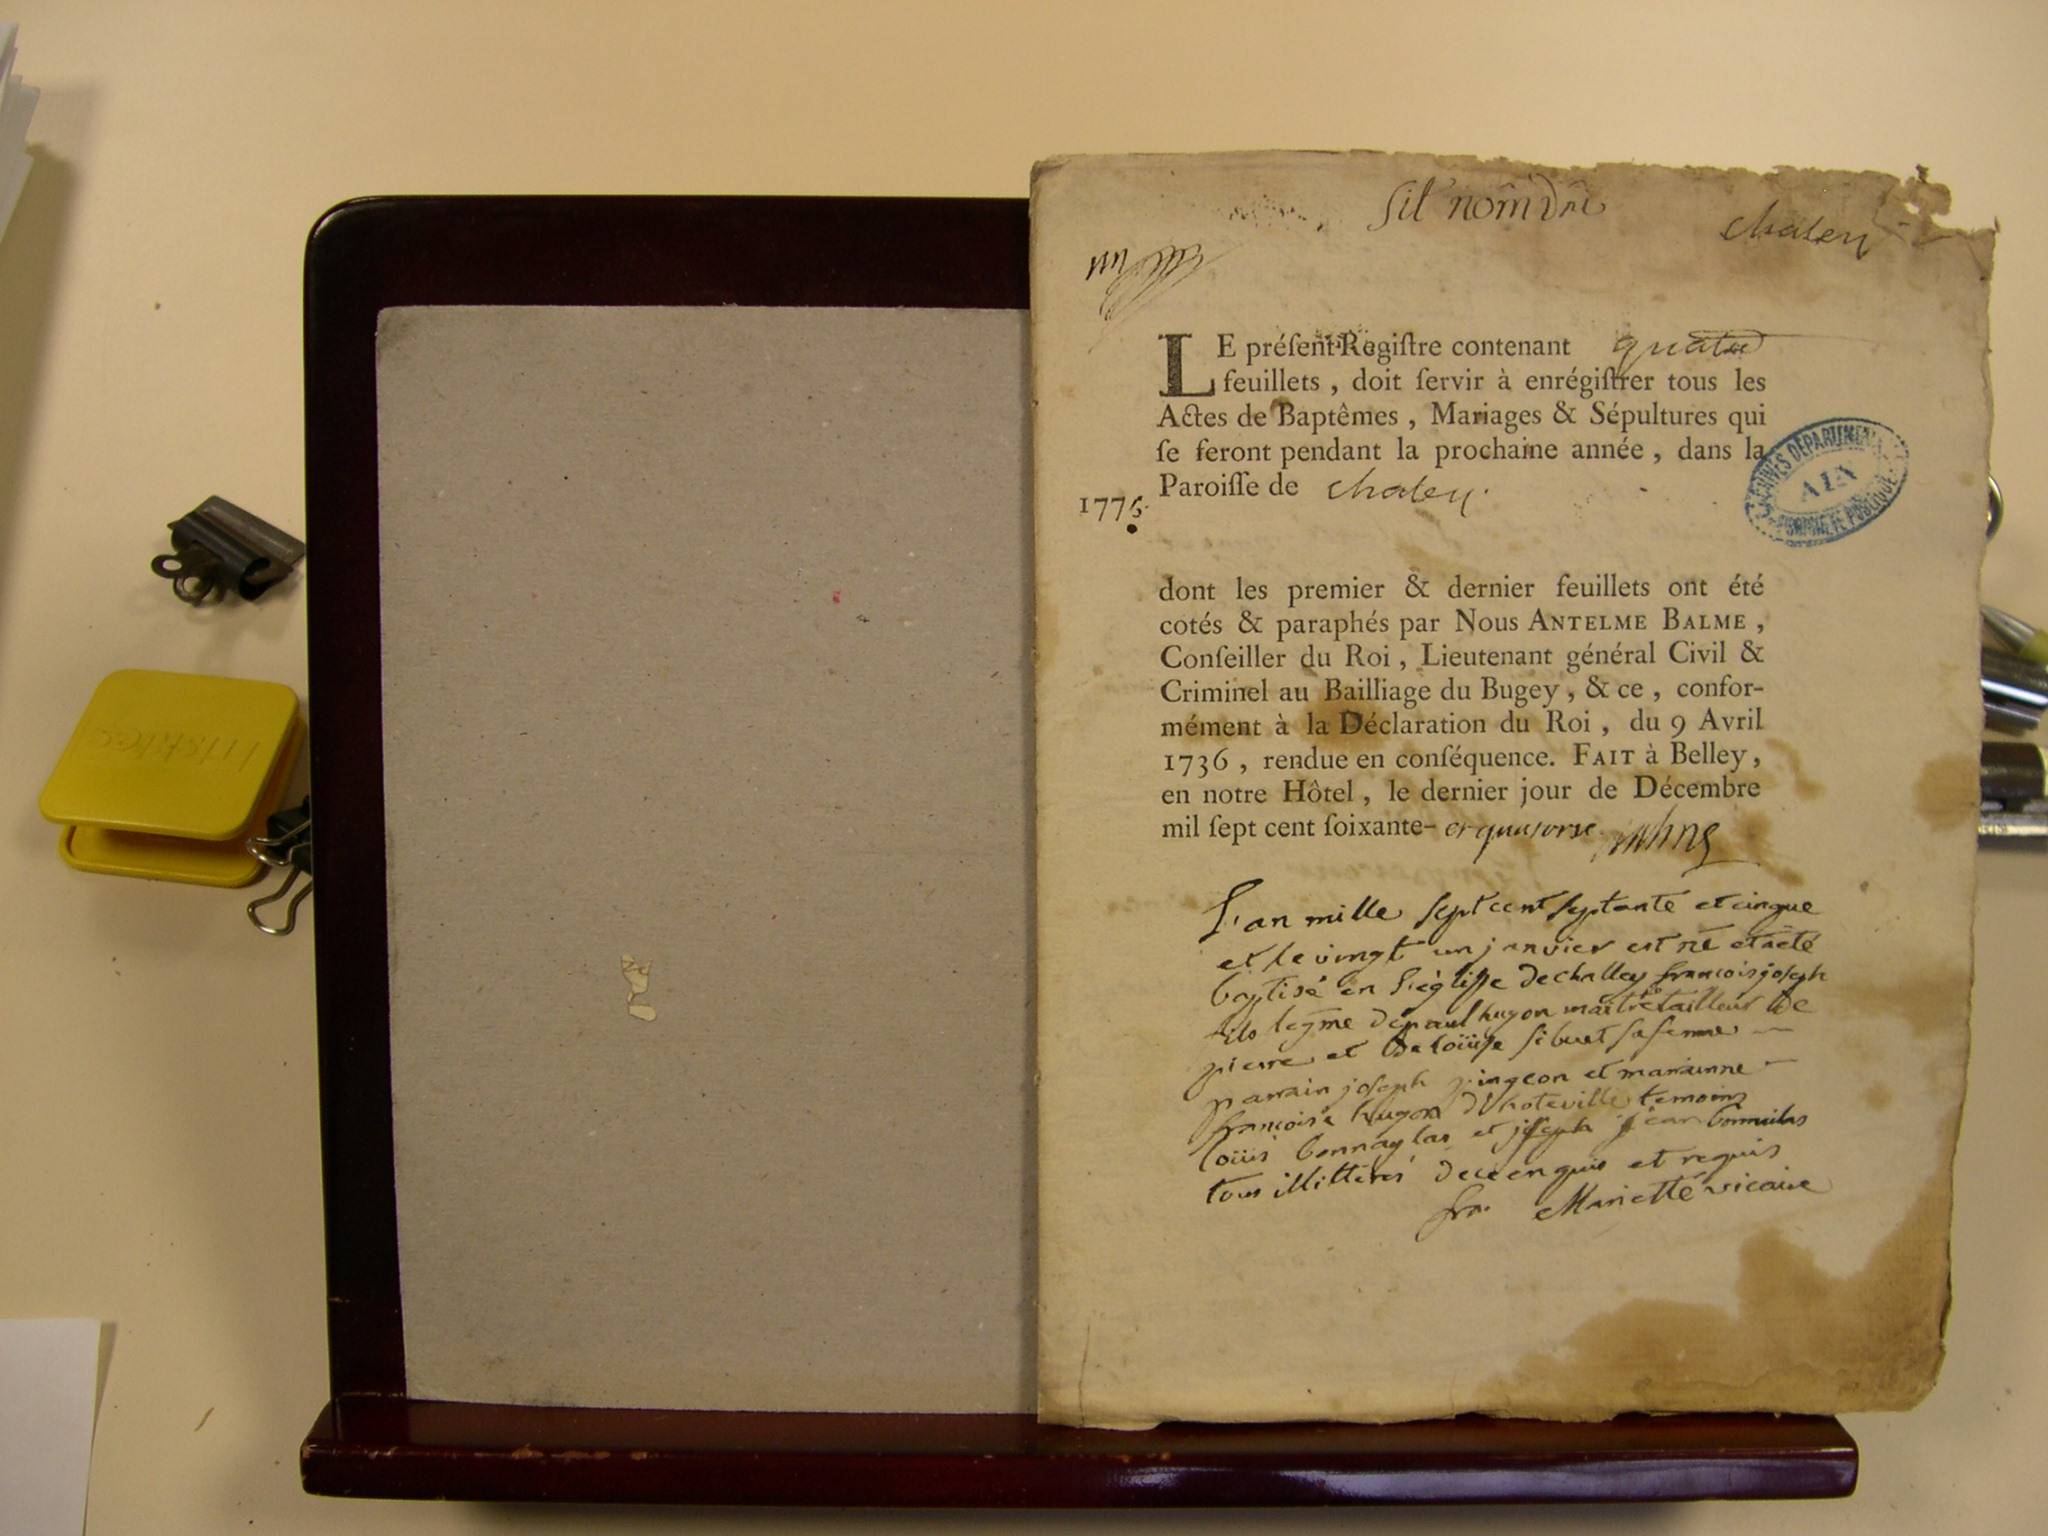 sit nôm Dni
chaley
LE préſent Regiſtre contenant quatre
feuillets, doit ſervir à enrégiſtrer tous les
Actes de Baptêmes, Mariages & Sépultures qui
ſe feront pendant la prochaine année, dans la
Paroiſſe de chaley.
1775
ARCHIVES DÉPARTEMENTALES
AIN
dont les premier & dernier feuillets ont été
cotés & paraphés par Nous ANTELME BALME,
Conſeiller du Roi, Lieutenant général Civil &
Criminel au Bailliage du Bugey, & ce, confor-
mément à la Déclaration du Roi, du 9 Avril
1736, rendue en conſéquence. FAIT à Belley,
en notre Hôtel, le dernier jour de Décembre
mil ſept cent ſoixante- et quatorse
L'an mille sept cent septante et cinque
et le vingt un janvier est né et a été
baptisé en l'église de challey francois joseph
fils legme de paul hugon maitre tailleur de
pierre et de loüise sibuet sa femme
parrain joseph pingeon et marianne
francoise hugon d'hoteville temoins
loüis bonnaglas et joseph jean
tous illitterés de ce enquis et requis
fra. Mariette vicaire